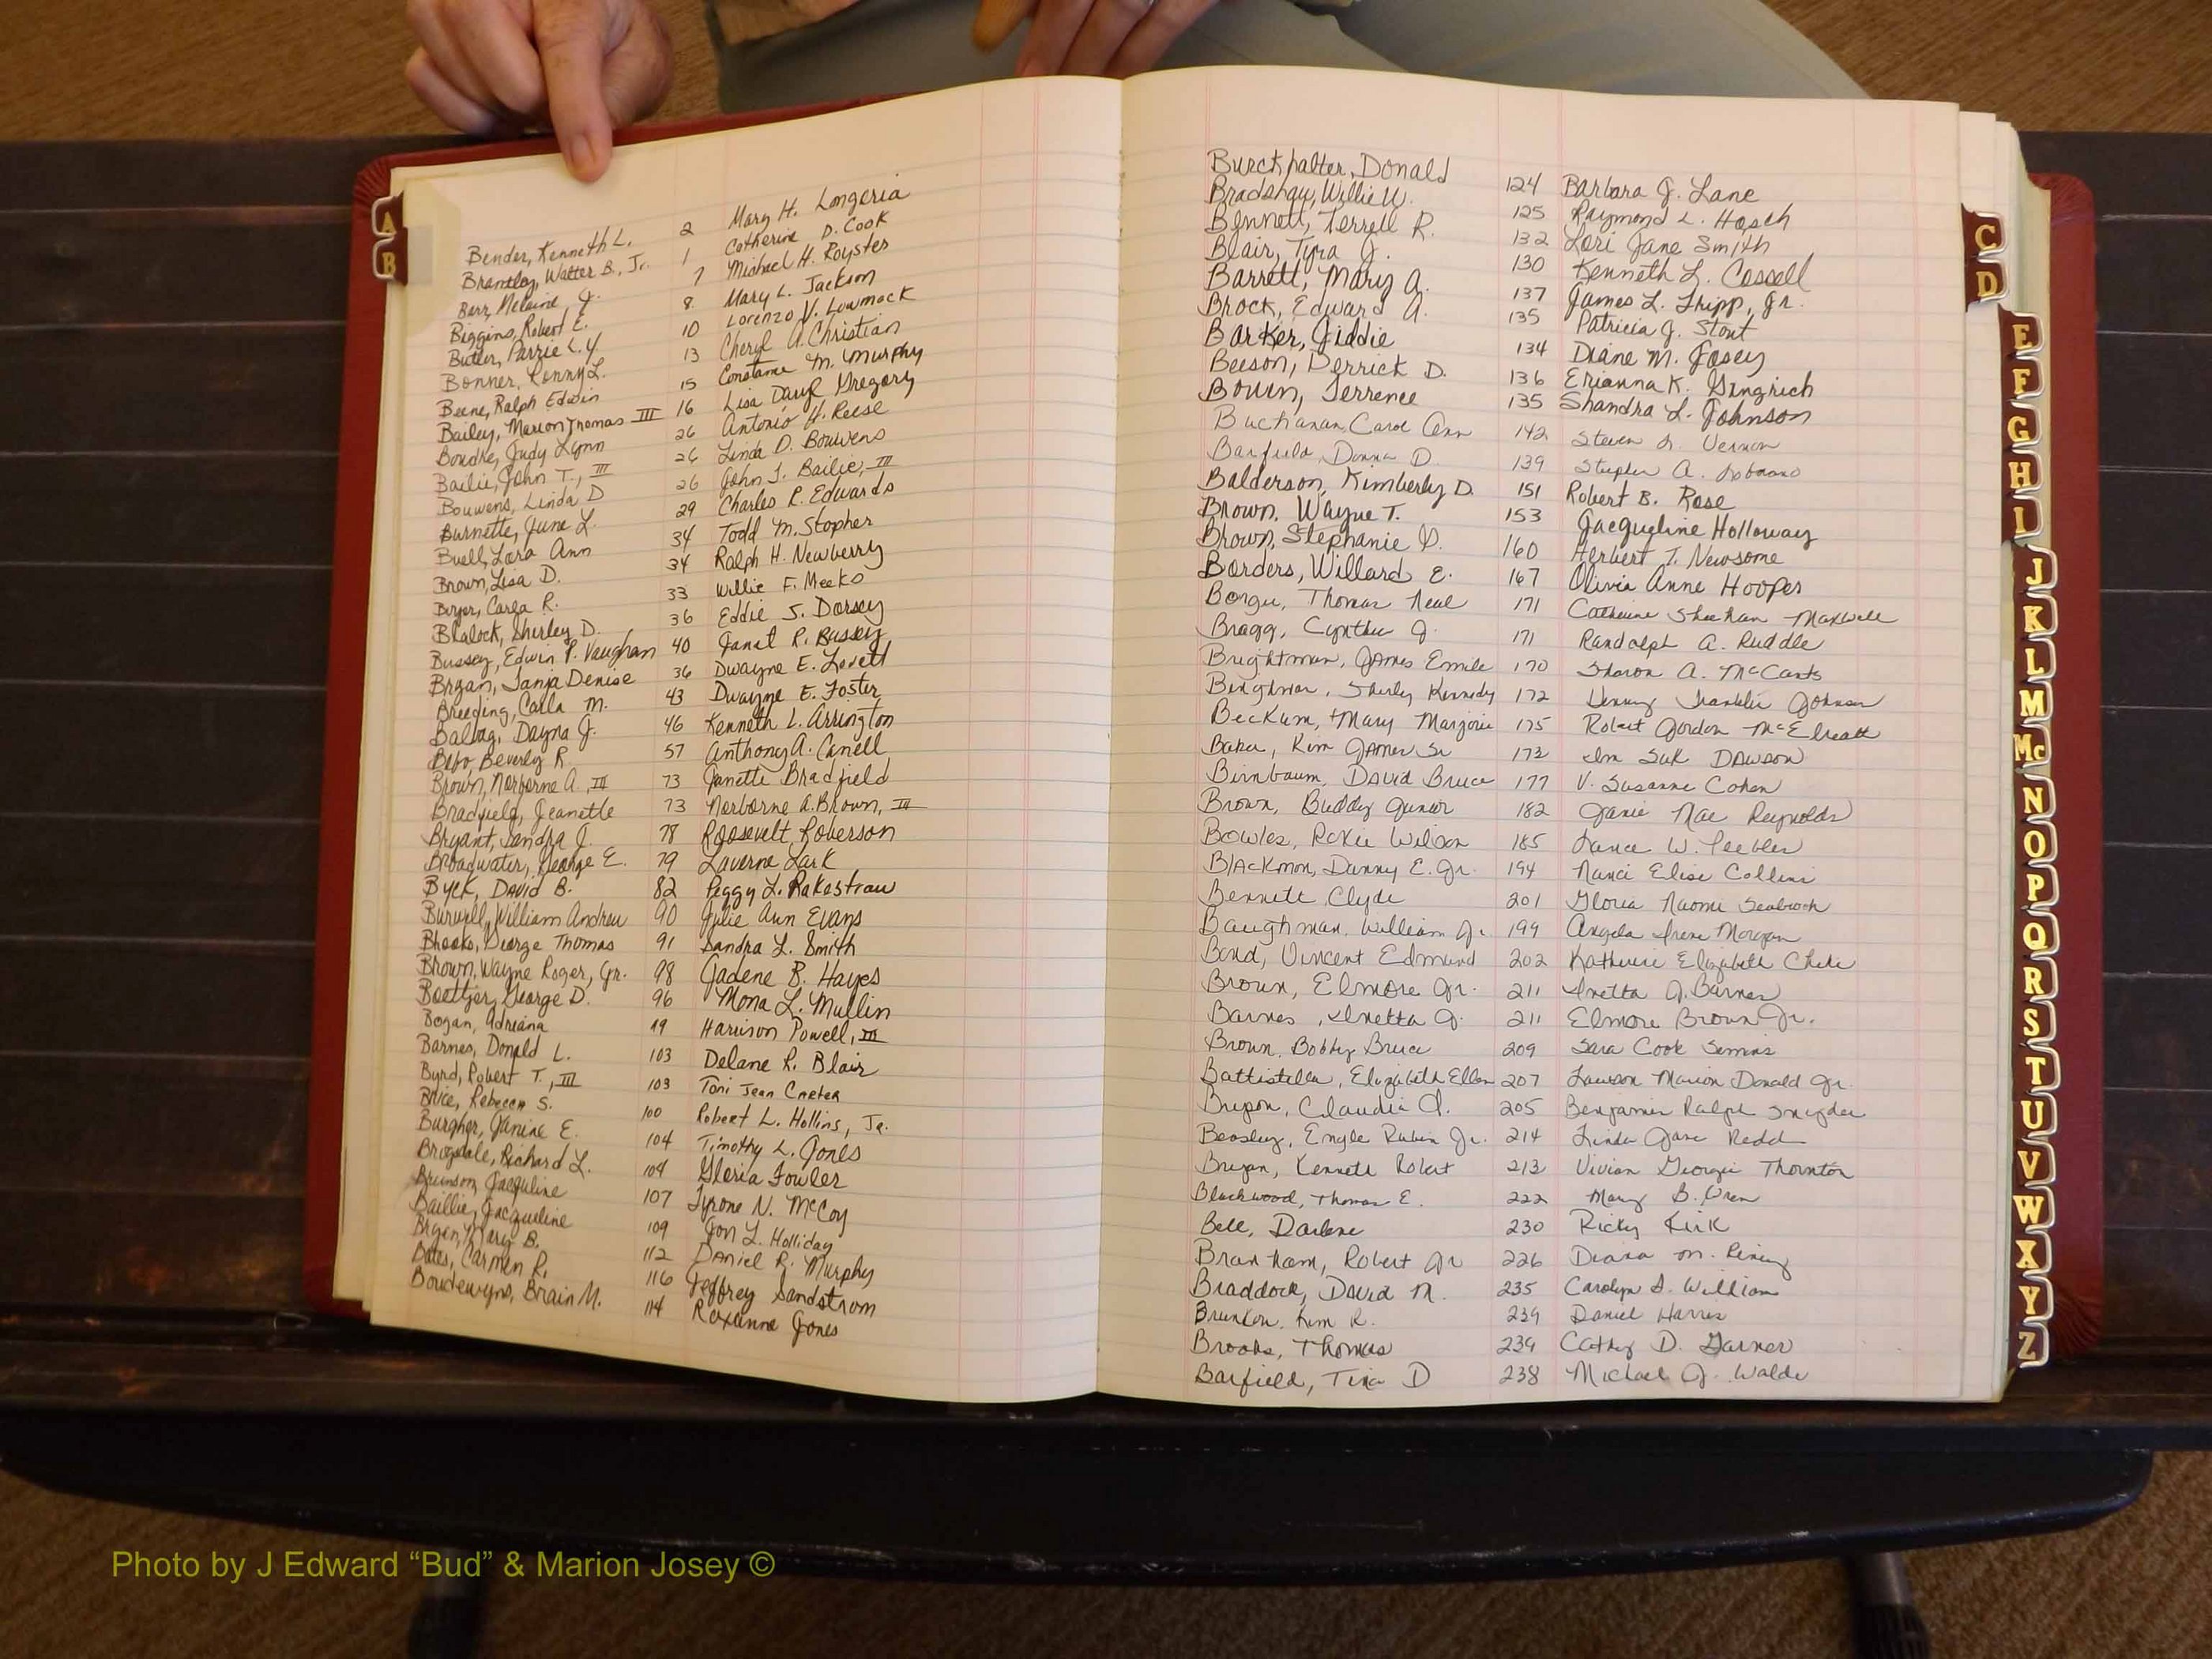 A
B
Bender, Kenneth L. 2 Mary H. Longoria
Brantley, Walter B., Jr. 1 Catherine D. Cook
Barr, Melaine J. 7 Michael H. Royster
Biggins, Robert E. 8 Mary L. Jackson
Butler, Parrie L.Y. 10 Lorenzo V. Lowmack
Bonner, Ronny L. 13 Cheryl A. Christian
Beene, Ralph Edwin 15 Constance M. Murphy
Bailey, Marion Thomas III 16 Lisa Daryl Gregory
Boudre, Judy Lynn 26 Antonio H. Reese
Bailie, John T., III 26 Linda D. Bouwens
Bouwens, Linda D 26 John T. Bailie, III
Burnette, June L. 29 Charles P. Edwards
Buell, Lora Ann 34 Todd M. Stopher
Brown, Lisa D. 34 Ralph H. Newberry
Boyer, Carla R. 33 Willie F. Meeks
Blalock, Shirley D. 36 Eddie S. Dorsey
Bussey, Edwin P. Vaughan 40 Janet R. Bussey
Bryan, Tanja Denise 36 Dwayne E. Lovett
Breeding, Carla M. 43 Dwayne E. Foster
Balbag, Dayna J. 46 Kenneth L. Arrington
Bebo, Beverly R 57 Anthony A. Canell
Brown, Norborne A., III 73 Janette Bradfield
Bradfield, Jeanette 73 Norborne A. Brown, III
Bryant, Sandra J. 78 Roosevelt Roberson
Broadwater, George E. 79 Laverne Lark
Byck, David B. 82 Peggy L. Rakestraw
Burwell, William Andrew 90 Julie Ann Evans
Bhooks, George Thomas 91 Sandra L. Smith
Brown, Wayne Roger, Jr. 98 Jadene B. Hayes
Boettjer, George D. 96 Mona L. Mullin
Bogan, Adriana 19 Harrison Powell, III
Barnes, Donald L. 103 Delane R. Blair
Byrd, Robert T., III 103 Toni Jean Creter
Brice, Rebecca S. 100 Robert L. Hollins, Jr.
Burgher, Janine E. 104 Timothy L. Jones
Brogdale, Richard L. 104 Gloria Fowler
Brunson, Jacquline 107 Tyrone N. McCoy
Baillie, Jacqueline 109 Jon L. Holliday
Bryan, Mary B. 112 Daniel R. Murphy
Bates, Carmen R. 116 Jeffrey Sandstrom
Boudewyns, Brain M. 114 Roxanne Jones
Burckhalter, Donald 124 Barbara J. Lane
Bradshaw, Willie W. 125 Raymond L. Hosch
Bennett, Terrell R. 132 Lori Jane Smith
Blair, Tyra J. 130 Kenneth L. Cassell
Barrett, Mary A. 137 James L. Tripp, Jr.
Brock, Edward A. 135 Patricia J. Stout
Barker, Jiddie 134 Diane M. Josey
Beeson, Derrick D. 136 Erianna K. Gingrich
Bouin, Terrence 135 Shandra L. Johnson
Buchanan, Carol Ann 142 Steven Vernon
Barfield, Donna D. 139 Stephen A.
Balderson, Kimberly D. 151 Robert B. Rose
Brown, Wayne T. 153 Jacqueline Holloway
Brown, Stephanie D. 160 Herbert T. Newsome
Borders, Willard E. 167 Olivia Anne Hooper
Thomas Neal 171 Catherine Sheehan Maxwell
Bragg, Cynthia J. 171 Randolph A. Ruddle
Brightman, James Emile 170 Sharon A. McCants
Bingham, Shirly Kennedy 172 Denny Franklin Johnson
Beckum, Mary Marjorie 175 Robert Gordon McElreath
Baker, Kim James Sr 172 Im Suk Dawson
Birnbaum, David Bruce 177 V. Susanne Cohen
Brown, Buddy Junior 182 Janie Mae Reynolds
Bowles, Roxie Wilson 185 Lance W. Peebles
Blackmon, Danny E. Jr. 194 Nanci Elise Collins
Bennett Clyde 201 Gloria Naomi Seabrook
Baughman, William Jr. 199 Angela Irene Morgan
Bond, Vincent Edmund 202 Katherine Elizabeth Cheke
Brown, Elmore Jr. 211 Inetta J. Barnes
Barnes, Inetta J. 211 Elmore Brown Jr.
Brown, Bobby Bruce 209 Sara Cook Simms
Battistella, Elizabeth Ellen 207 Lawson Marion Donald Jr.
Bryson, Claudia A. 205 Benjamin Ralph Snyder
Beasley, Engle Rubin Jr. 214 Linda Jane Redd
Bryan, Kenneth Robert 213 Vivian Georgie Thornton
Blackwood, Thomas E. 222 Mary B. Wren
Bell, Darlene 230 Ricky Kirk
Branham, Robert Jr 226 Diana M.
Braddock, David M. 235 Carolyn S. William
Brunson, Kim R. 239 Daniel Harris
Brooks, Thomas 239 Cathy D. Garner
Barfield, Tina D 238 Michael J. Walde
C
D
E
F
G
H
I
J
K
L
M
Mc
N
O
P
Q
R
S
T
U
V
W
X
Y
Z
Photo by J Edward “Bud” & Marion Josey ©